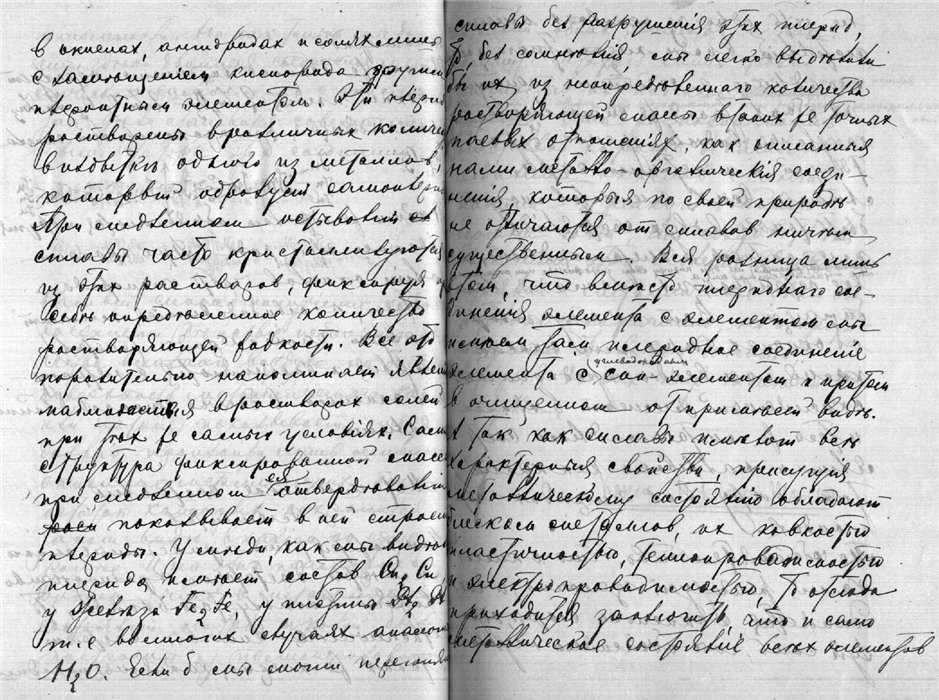 в окислах, ангидридах и солях лишь
с замещением кислорода другим
элементом. Эти
растворены в различных количе
в избытке одного из металлов,
который образует
При медленном остывании
сплавы часто кристаллизуются
из этих растворов, фиксируя в
себе определенное количество
растворяющей жидкости. Все это
поразительно напоминает явления
наблюдаемыя в растворах солей
при тех же самых условіях. Сама
структура фиксированной массы
при медленном ея отвердевании
показывает в ней строение
пнериды. У меди, как мы видим
пнерида имеет состав Cu2Cu,
у железа Fe2Fe, у платины Pt2Pt
т.е во многих случаях аналог
H2O. Если б мы могли перегонять
сплавы без разрушенія этих пнерид,
То, без сомненія, мы легко выделили
бы их из неопределенного количества
растворяющей массы в таких же точных
паевых отношеніях, как описанныя
нами металло-органическія соеди-
ненія, которыя по своей природе
не отличаются от сплавов ничем
существенным. Вся разница лишь
в том, что вместо пнериднаго сое-
диненія элемента с элементом мы
имеем там пнеридное соединеніе
элемента с углеводородным элементом и притом
в очищенном от примесей виде.
А так как сплавы имеют все
характерныя свойства, присущія
металлическому состоянію обладают
блеском металлов, их ковкостью
пластичностью, теплопроводимостью
и электропроводимостью, То отсюда
приходится заключить что и само
металлическое состояніе всех элементов